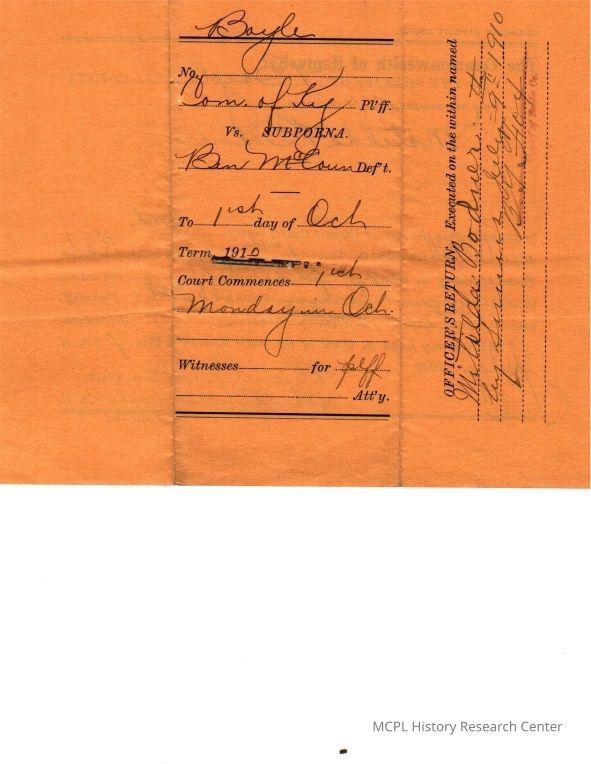 Boyle
No.
Com. of Ky Pl'ff.
Vs. SUBPOENA.
Ben McCoun Def't.
To 1st day of Oct
Term, 1910
Court Commences 1st
Monday in Oct.
Witnesses for plff
Att'y.
OFFICER'S RETURN. Executed on the within named
Matilda
by July 9th 1910
MCPL History Research Center